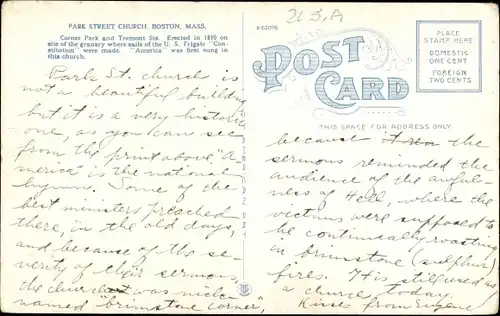 PARK STREET CHURCH, BOSTON, MASS.
Corner Park and Tremont Sts. Erected in 1810 on
site of the granary where sails of the U. S. Frigate "Con-
stitution" were made. "America" was first sung in
this church.
Park St. church is
not a beautiful building
but it is a very historic
one, as you can see
from the print above. "A-
merica" is the national
hymn. Some of the
best ministers preached
there, in the old days,
and because of the se-
verity of their sermons,
the church was nick-
named "brimstone corner",
U.S.A
POST CARD
THIS SPACE FOR ADDRESS ONLY
PLACE
STAMP HERE
DOMESTIC
ONE CENT
FOREIGN
TWO CENTS
because the
sermons reminded the
audience of the awful-
ness of Hell, where the
victims were supposed to
be continually roasting
in brimstone (sulphur)
fires. It is still used as
a church today.
Kisses from Eugene